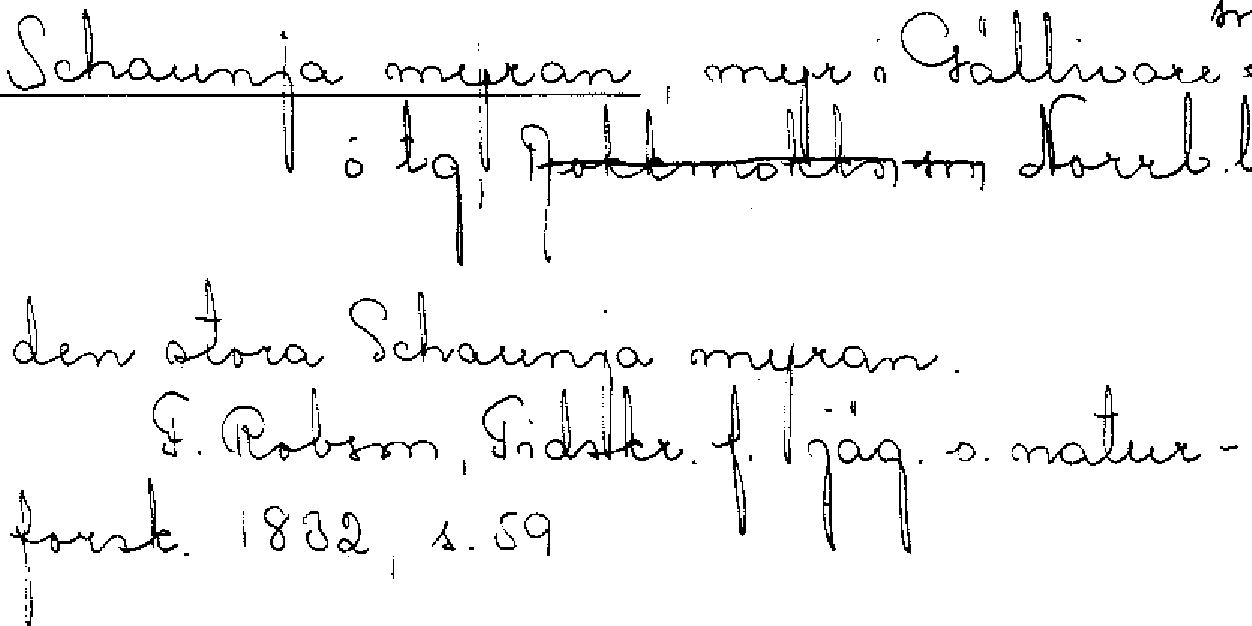 Schaunja myran, myr i Gällivare sn
o tg, Jokkmokks sn, Norrb. l
den stora Schaunja myran.
F. Robson, Tidskr. f. jäg. o. natur-
forsk. 1832, s. 59